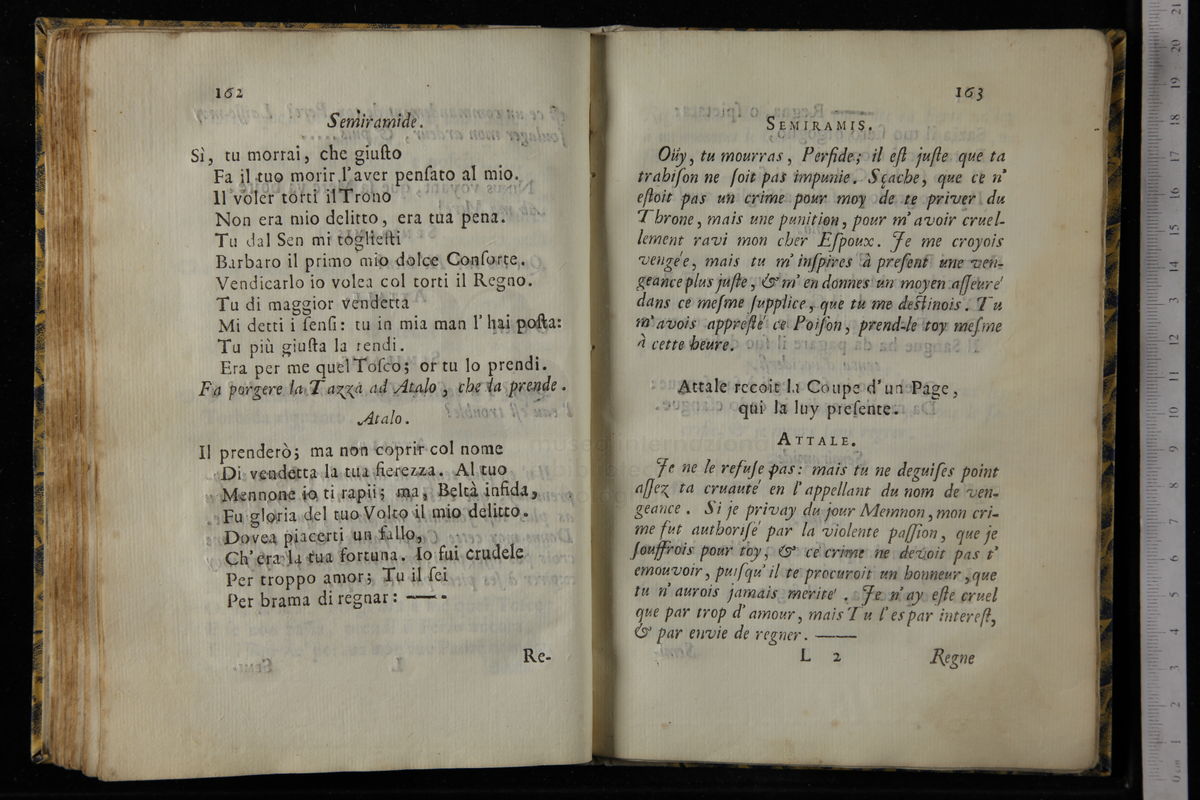 162
Semiramide.
Sì, tu morrai, che giuſto
Fa il tuo morir l'aver penſato al mio.
Il voler torti il Trono
Non era mio delitto, era tua pena.
Tu dal Sen mi toglieſti
Barbaro il primo mio dolce Conſorte.
Vendicarlo io volea col torti il Regno.
Tu di maggior vendetta
Mi detti i ſenſi: tu in mia man l' hai poſta:
Tu più giuſta la rendi.
Era per me quel Toſco; or tu lo prendi.
Fa porgere la Tazza ad Atalo, che la prende.
Atalo.
Il prenderò; ma non coprir col nome
Di vendetta la tua fierezza. Al tuo
Mennone io ti rapii; ma, Beltà infida,
Fu gloria del tuo Volto il mio delitto.
Dovea piacerti un fallo,
Ch' era la tua fortuna. Io fui crudele
Per troppo amor; Tu il ſei
Per brama di regnar: ——
Re-
163
SEMIRAMIS.
Oüy, tu mourras, Perfide; il eſt juſte que ta
trahiſon ne ſoit pas impunie. Sçache, que ce n'
eſtoit pas un crime pour moy de te priver du
Throne, mais une punition, pour m' avoir cruel-
lement ravi mon cher Eſpoux. Je me croyois
vengée, mais tu m' inſpires à preſent une ven-
geance plus juſte, & m' en donnes un moyen aſſeuré
dans ce meſme ſupplice, que tu me deſtinois. Tu
m' avois appreſté ce Poiſon, prend-le toy meſme
à cette heure.
Attale recoit la Coupe d' un Page,
qui la luy preſente.
ATTALE.
Je ne le refuſe pas: mais tu ne deguiſes point
aſſez ta cruauté en l' appellant du nom de ven-
geance. Si je privay du jour Memnon, mon cri-
me fut authoriſé par la violente paſſion, que je
ſouffrois pour toy, & ce crime ne devoit pas t'
emouvoir, puiſqu' il te procuroit un honneur, que
tu n' aurois jamais merité. Je n' ay eſte cruel
que par trop d' amour, mais Tu l' es par intereſt,
& par envie de regner. ——
L 2
Regne